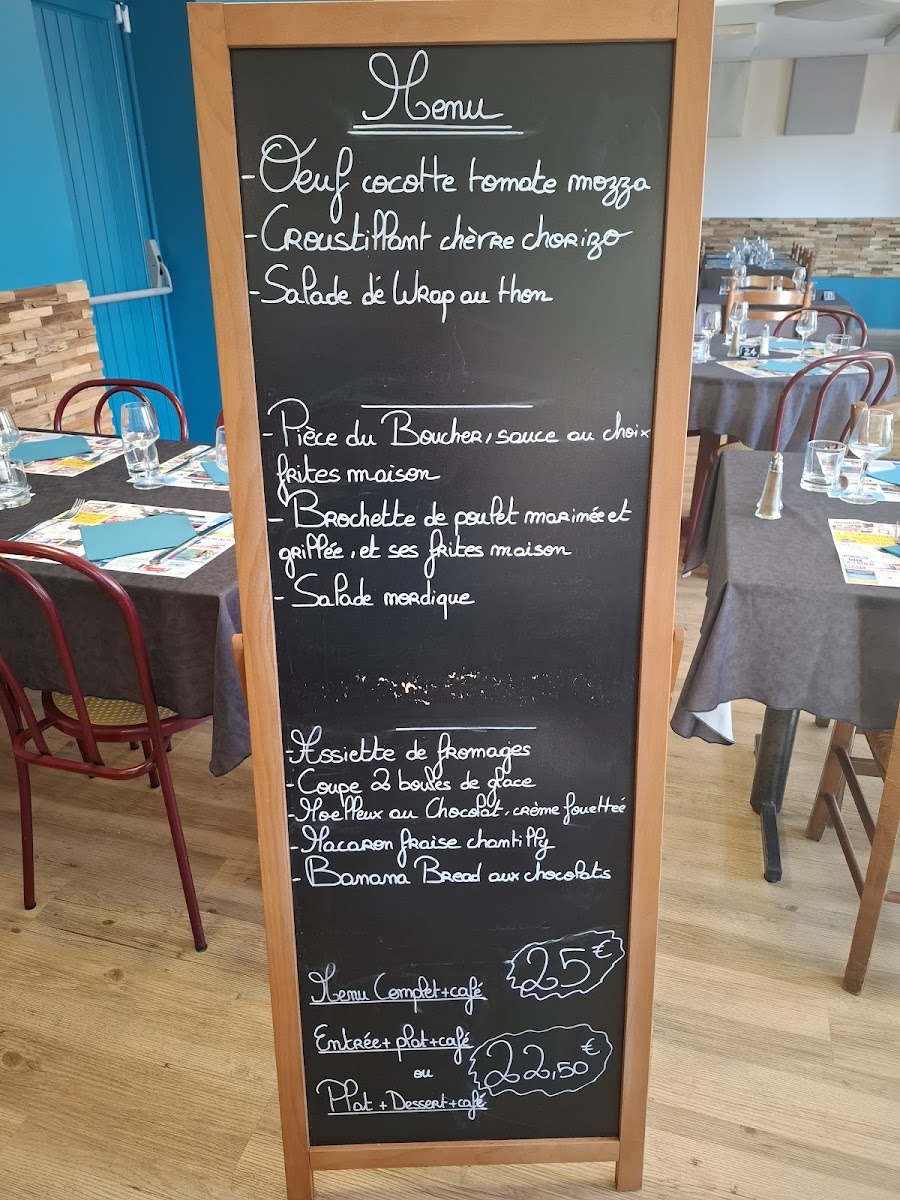 Menu
- Oeuf cocotte tomate mozza
- Croustillant chèvre chorizo
- Salade dé Wrap au thon
- Pièce du Boucher, sauce au choix
frites maison
- Brochette de poulet marinée et
grillée, et ses frites maison
- Salade nordique
- Assiette de fromages
- Coupe 2 boules de glace
- Moelleux au Chocolat, crème fouetteé
- Macaron fraise chantilly
- Banana Bread aux chocolats
Menu Complet + café 25€
Entrée + plat + café
ou 22,50€
Plat + Dessert + café
24